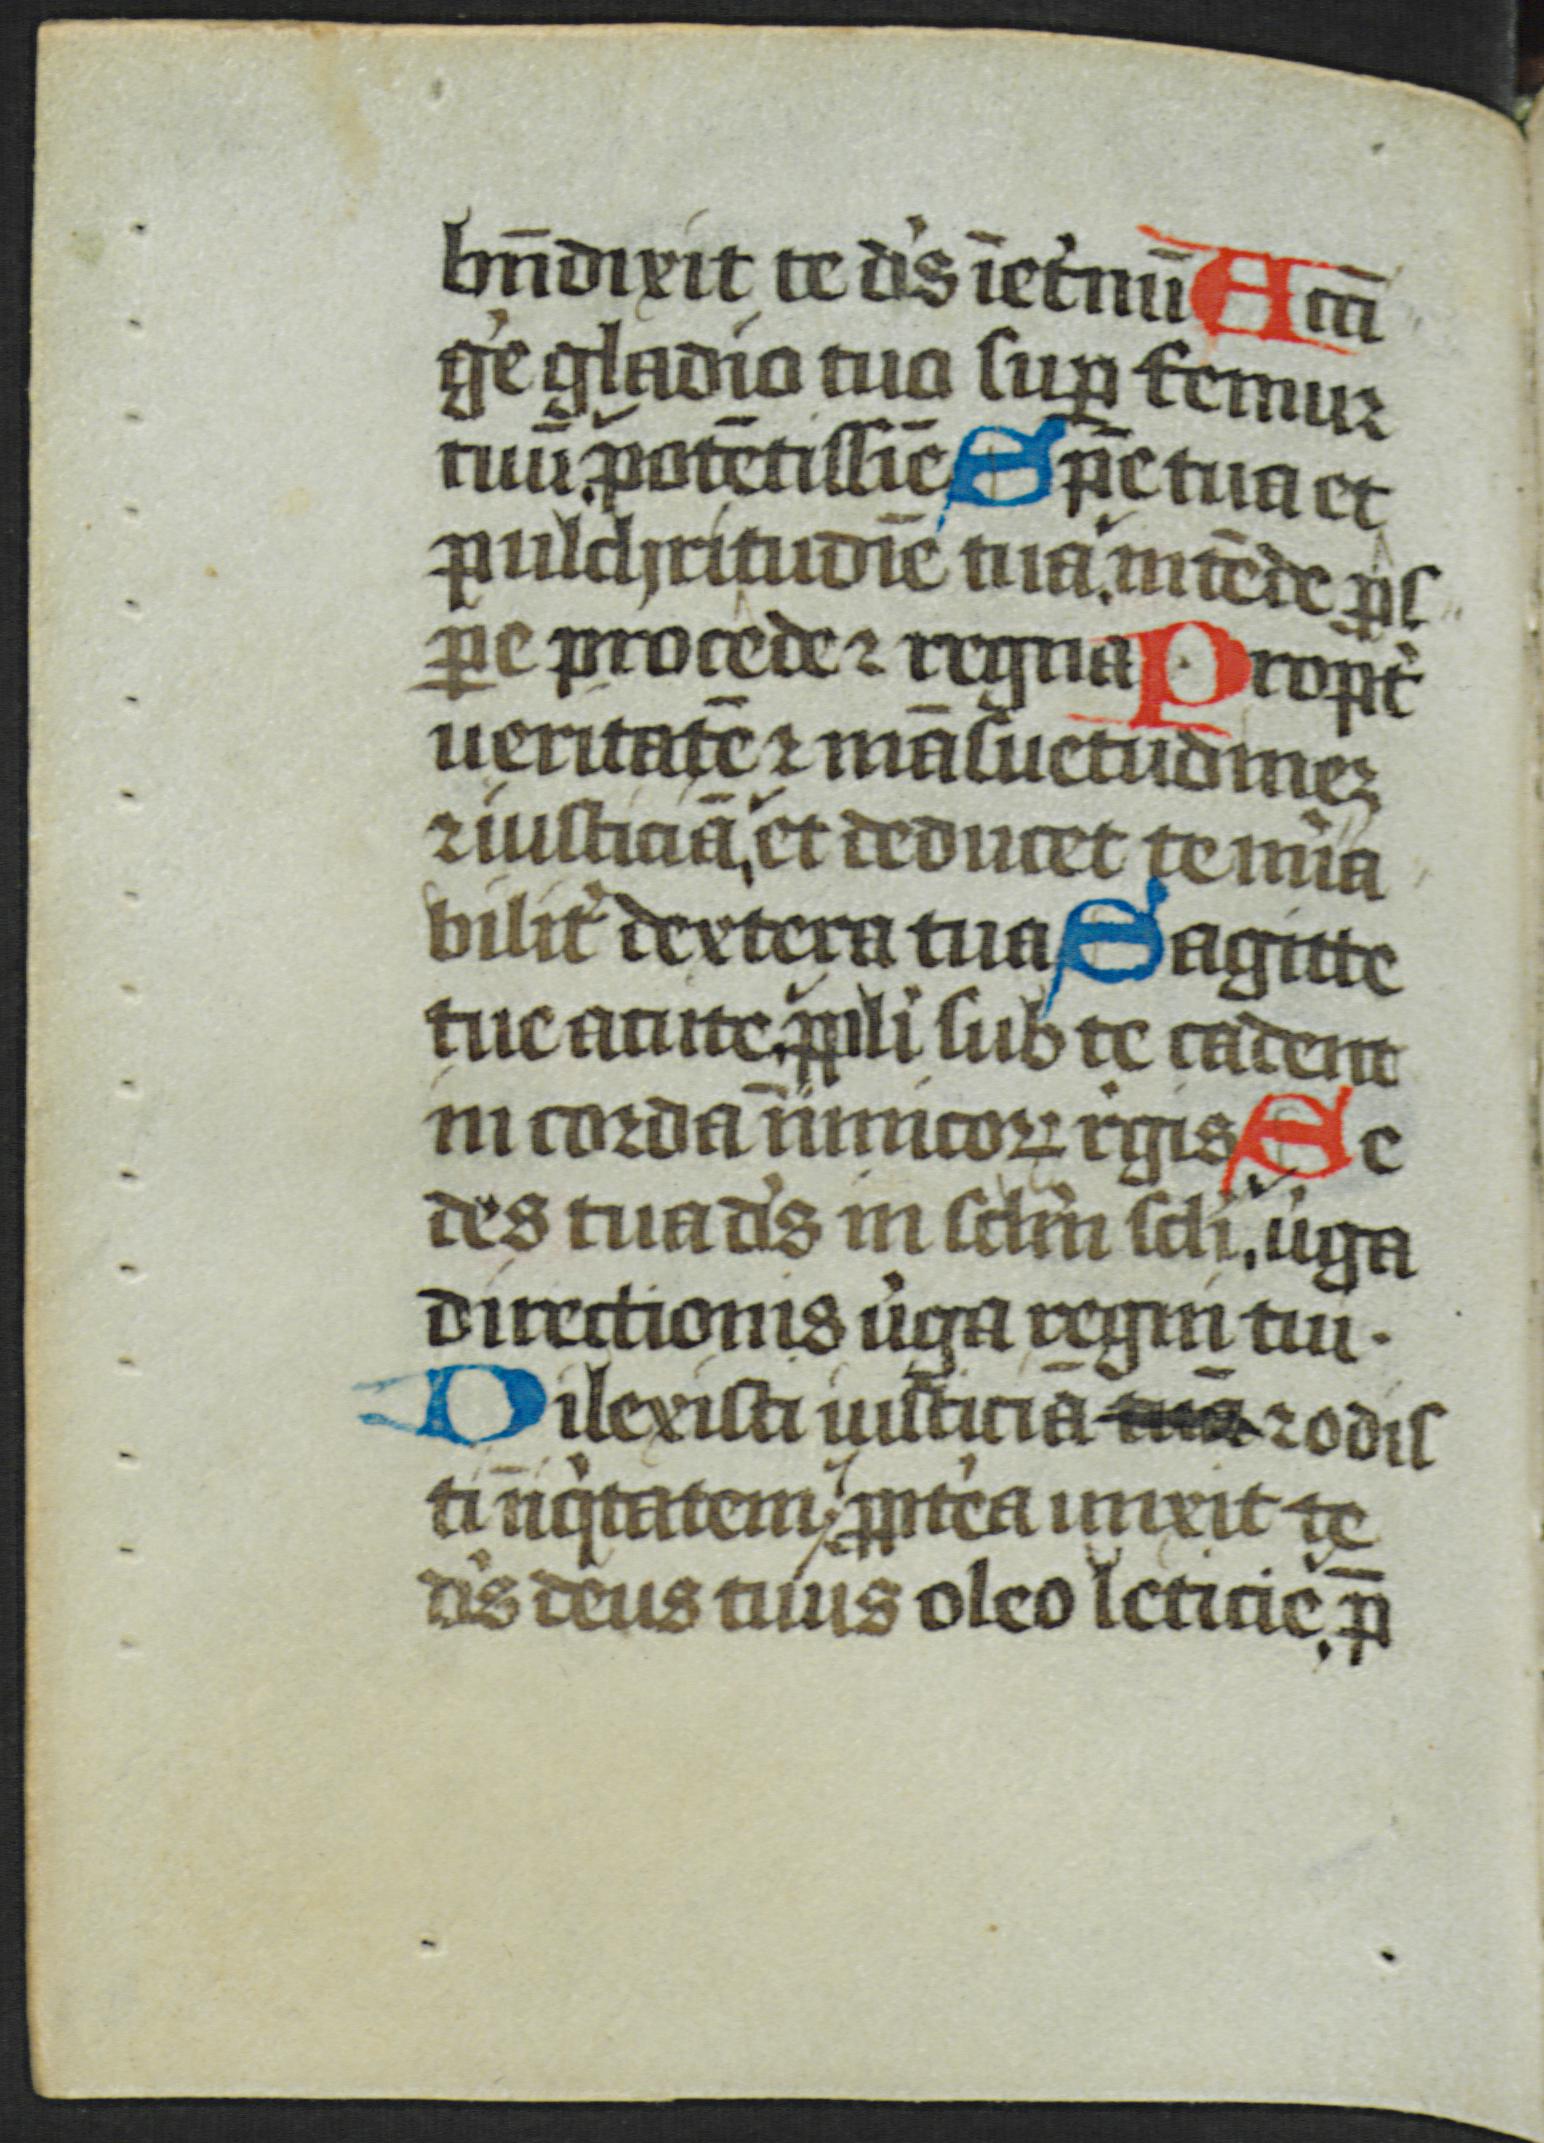 bn̄dixit te d's īet'nū Acci
g'e gladio tuo sup̱ femur
tuū. potētissīe Sp̄e tua et
pulchritudīe tua. intēde p̱s
p̱e procede ⁊ regna Propt'
ueritatē ⁊ māsuetudinez
⁊ iusticiā, et deducet te mi'a
bilit' dextera tua Sagitte
tue acute. pp̱li sub te cadent
in corda īnimicoꝝ r'gis Se
des tua d's in sc'lm sc'li. ũga
directionis ũga regni tui.
Dilexisti iusticiā tuā ⁊ odis
ti īiq'tatem, pp̱t'ea unxit te
d's deus tuus oleo leticie. p̄